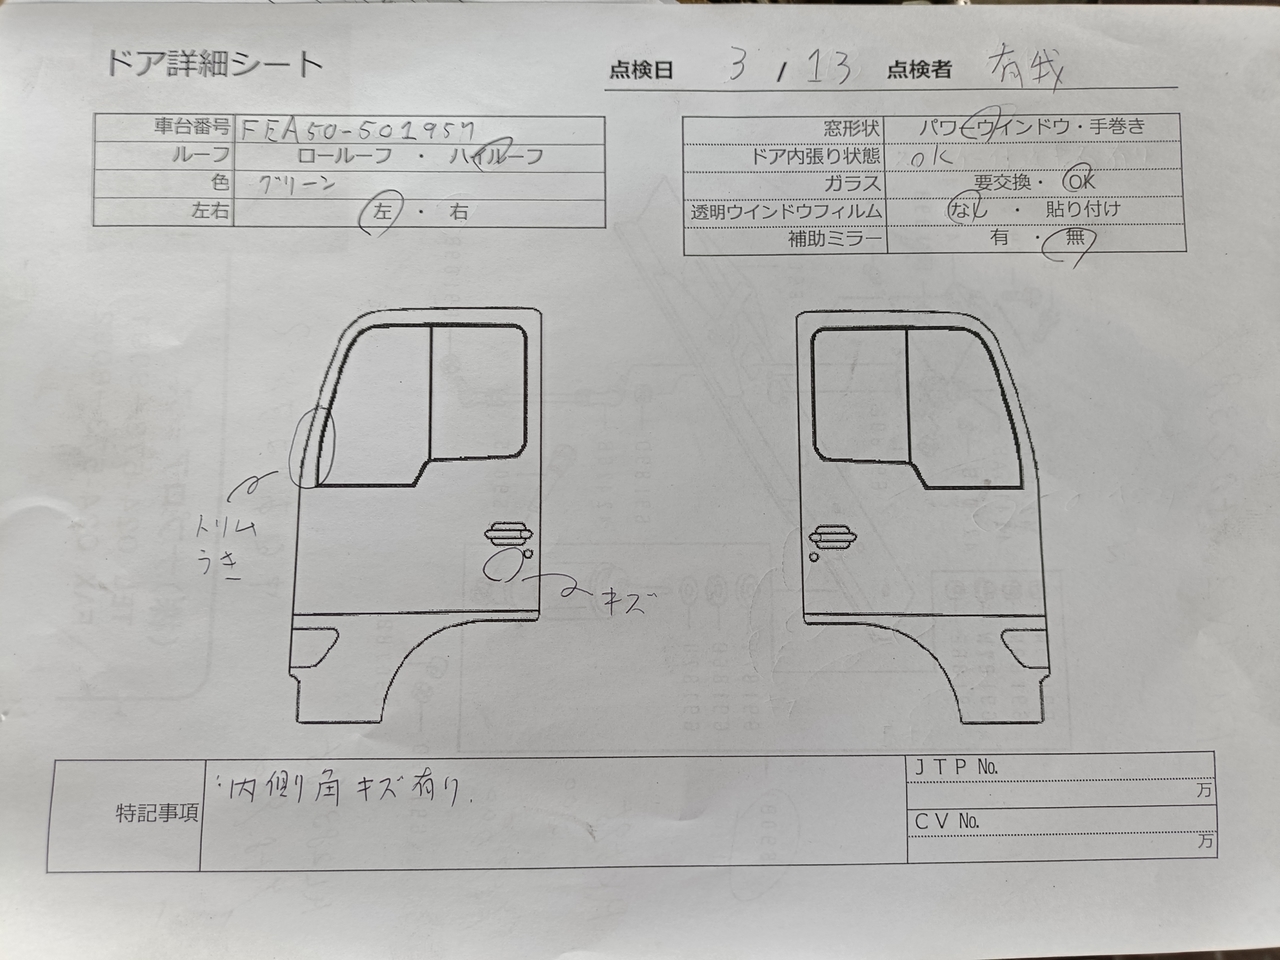 ドア詳細シート
点検日 3 / 13 点検者 有我
車台番号 FEA50-501957
ルーフ ロールーフ ・ ハイルーフ
色 グリーン
左右 左 ・ 右
窓形状 パワーウインドウ・手巻き
ドア内張り状態 OK
ガラス 要交換・ OK
透明ウインドウフィルム なし ・ 貼り付け
補助ミラー 有 ・ 無
トリム
うき
キズ
特記事項
:内側角キズ有り.
JTP №
万
CV №
万